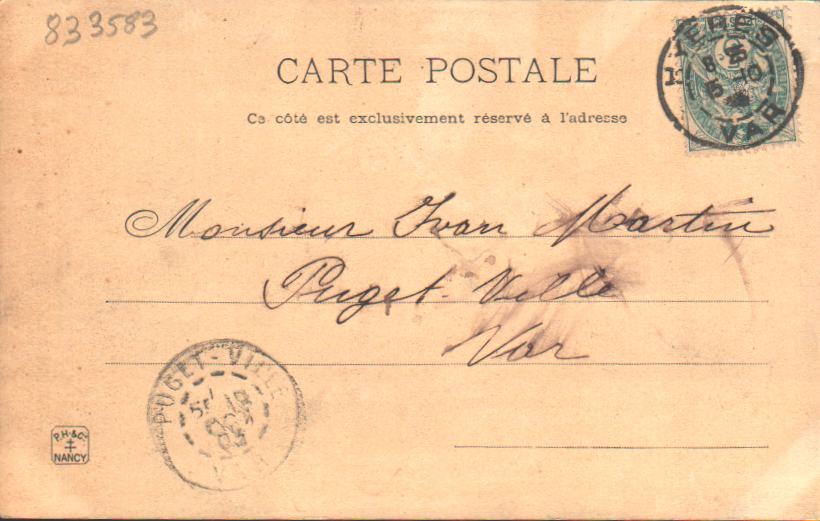 833583
CARTE POSTALE
Ce côté est exclusivement réservé à l'adresse
VAR
Monsieur Ivan Martin
Puget-Ville
Var
PUGET-VILLE
P.H.& Cie
NANCY